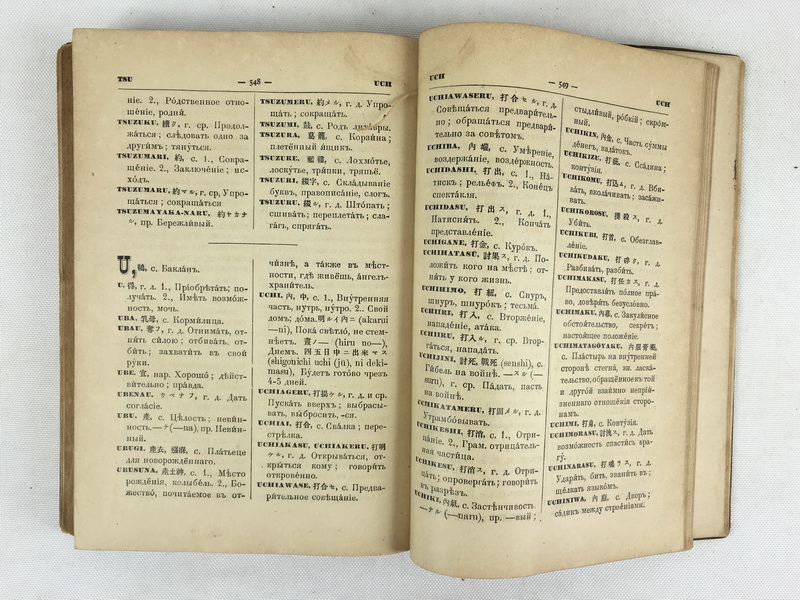 TSU
— 548 —
UCH
ніе. 2., Ро́дственное отно-
ше́ніе, родня́.
TSUZUKU, 續ク, г. ср. Продол-
жа́ться; слѣ́довать одно за
други́мъ; тяну́ться.
TSUZUMARI, 約, с. 1., Сокра-
ще́ніе. 2., Заключе́ніе; ис-
хо́дъ.
TSUZUMARU, 約マル, г. ср, Упро-
ща́ться; сокраща́ться
TSUZUMAYAKA-NARU, 約ヤカナ
ル, пр. Бережли́вый.
TSUZUMERU, 約メル, г. д. Упро-
ща́ть; сокраща́ть.
TSUZUMI, 鼓, с. Родъ
TSUZURA, 葛籠, с. Корзи́на;
плетённый я́щикъ.
TSUZURE, 襤褸, с. Лохмо́тье,
лоску́тье, тря́пки, тряпьё.
TSUZURI, 綴字, с. Скла́дываніе
буквъ, правописа́ніе, слогъ.
TSUZURU, 綴ル, г. д. Што́пать;
сшива́ть; переплета́ть; сла-
га́ть, спряга́ть.
U, 鵜, с. Бакла́нъ.
U, 得, г. д. 1., Пріобрѣта́ть; по-
луча́ть. 2., Имѣ́ть возмо́ж-
ность, мочь.
UBA, 乳母, с. Корми́лица.
UBAU, 奪フ, г. д. Отнима́ть, от-
ня́ть си́лою; отбива́ть, от-
би́ть; захвати́ть въ свои́
ру́ки.
UBE, 宜, нар. Хорошо́; дѣйст-
ви́тельно; пра́вда.
UBENAU, ウベナフ, г. д. Дать
согла́сіе.
UBU, 産, с. Цѣ́лость; неви́н-
ность.—ナ(—na), пр. Неви́н-
ный.
UBUGI, 産衣, 襁褓, с. Пла́тьеце
для новорождённаго.
UBUSUNA, 産土神, с. 1., Мѣ́сто
рожде́нія, колыбе́ль. 2., Бо-
жество́, почита́емое въ от-
чи́знѣ, а та́кже въ мѣст-
ности, гдѣ живёшь, а́нгелъ-
храни́тель.
UCHI, 内, 中, с. 1., Вну́тренняя
часть, нутрь, нутро́. 2., Свой
домъ; до́ма.明ルイ内ニ (akarui
—ni), Пока́ свѣтло́, не стем-
нѣ́етъ. 晝ノ— (hiru no—),
Днемъ. 四五日中ニ出來マス
(shigonichi uchi (ju), ni deki-
masu), Бу́детъ гото́во чрезъ
4-5 дней.
UCHIAGERU, 打揚ケル, г. д. и ср.
Пуска́ть вверхъ; выбрасы-
ва́ть, вы́бросить, -ся.
UCHIAI, 打合, с. Сва́лка; пере-
стрѣ́лка.
UCHIAKASU, UCHIAKERU, 打明
ケル, г. д. Открыва́ться, от-
кри́ться кому; говори́ть
открове́нно.
UCHIAWASE, 打合セ, с. Предва-
ри́тельное совѣща́ніе.
UCH
— 549 —
UCH
UCHIAWASERU, 打合セル, г. д
Совѣща́ться предвари́тель-
но; обраща́ться предвари́-
тельно за совѣ́томъ.
UCHIBA, 内端, с. Умѣ́реніе,
воздержа́ніе, возде́ржность.
UCHIDASHI, 打出, с. 1., На́-
тискъ; релье́фъ. 2., Коне́цъ
спекта́кля.
UCHIDASU, 打出ス, г. д. 1.,
Нати́снить. 2., Конча́ть
представле́ніе.
UCHIGANE, 打金, с. Куро́къ.
UCHIHATASU, 討果ス, г. д. По-
ложи́ть кого на мѣ́стѣ; от-
ня́ть у кого жизнь.
UCHIHIMO, 打紐, с. Снуръ,
шнуръ, шнуро́къ; тесьма́.
UCHIIRI, 打入, с. Вторже́ніе,
нападе́ніе, ата́ка.
UCHIIRU, 打入ル, г. ср. Втор-
га́ться, напада́ть.
UCHIJINI, 討死, 戰死 (senshi), с.
Ги́бель на войнѣ́. —スル (—
suru), г. ср. Пада́ть, пасть
на войнѣ́.
UCHIKATAMERU, 打固メル, г. д.
Утрамбо́вывать.
UCHIKESHI, 打消, с. 1., Отри-
ца́ніе. 2., Грам. отрица́тель-
ная части́ца.
UCHIKESU, 打消ス, г. д. Отри-
ца́ть; опроверга́ть; говори́ть
въ разрѣ́зъ.
UCHIKI, 内氣, с. Застѣ́нчивость.
—ナル (—naru), пр. —вый;
стыдли́вый, ро́бкій; скро́м-
ный.
UCHIKIN, 内金, с. Часть су́ммы
де́негъ, зада́токъ.
UCHIKIZU, 打疵, с. Сса́дина;
конту́зія.
UCHIKOMU, 打込ム, г. д. Вби-
ва́ть, вкола́чивать; заса́жи-
вать.
UCHIKOROSU, 撲殺ス, г. д.
Уби́ть.
UCHIKUBI, 打首, с. Обезглав-
ле́ніе.
UCHIKUDAKU, 打碎ク, г. д.
Разбива́ть, разби́ть.
UCHIMAKASU, 打任カス, г. д.
Предоставля́ть по́лное пра́-
во, довѣ́рить безусло́вно.
UCHIMAKU, 内幕, с. Закули́сное
обстоя́тельство, секре́тъ;
настоя́щее положе́ніе.
UCHIMATAGŌYAKU, 内股膏藥,
с. Пла́стырь на вну́тренней
сторонѣ́ стегна́, зн. ласка́-
тельство,обращённоекъ той
и друго́й взаи́мно непрія́-
зненнаго отноше́нія сторо-
намъ.
UCHIMI, 打身, с. Конту́зія.
UCHIMORASU, 討洩ス, г. д. Дать
возмо́жность спасти́сь вра-
гу́.
UCHINARASU, 打鳴ラス, г. д.
Уда́рить, бить, звани́ть въ;
щёлкать язы́комъ.
UCHINIWA, 内庭, с. Дворъ;
са́дикъ между строе́ніями.